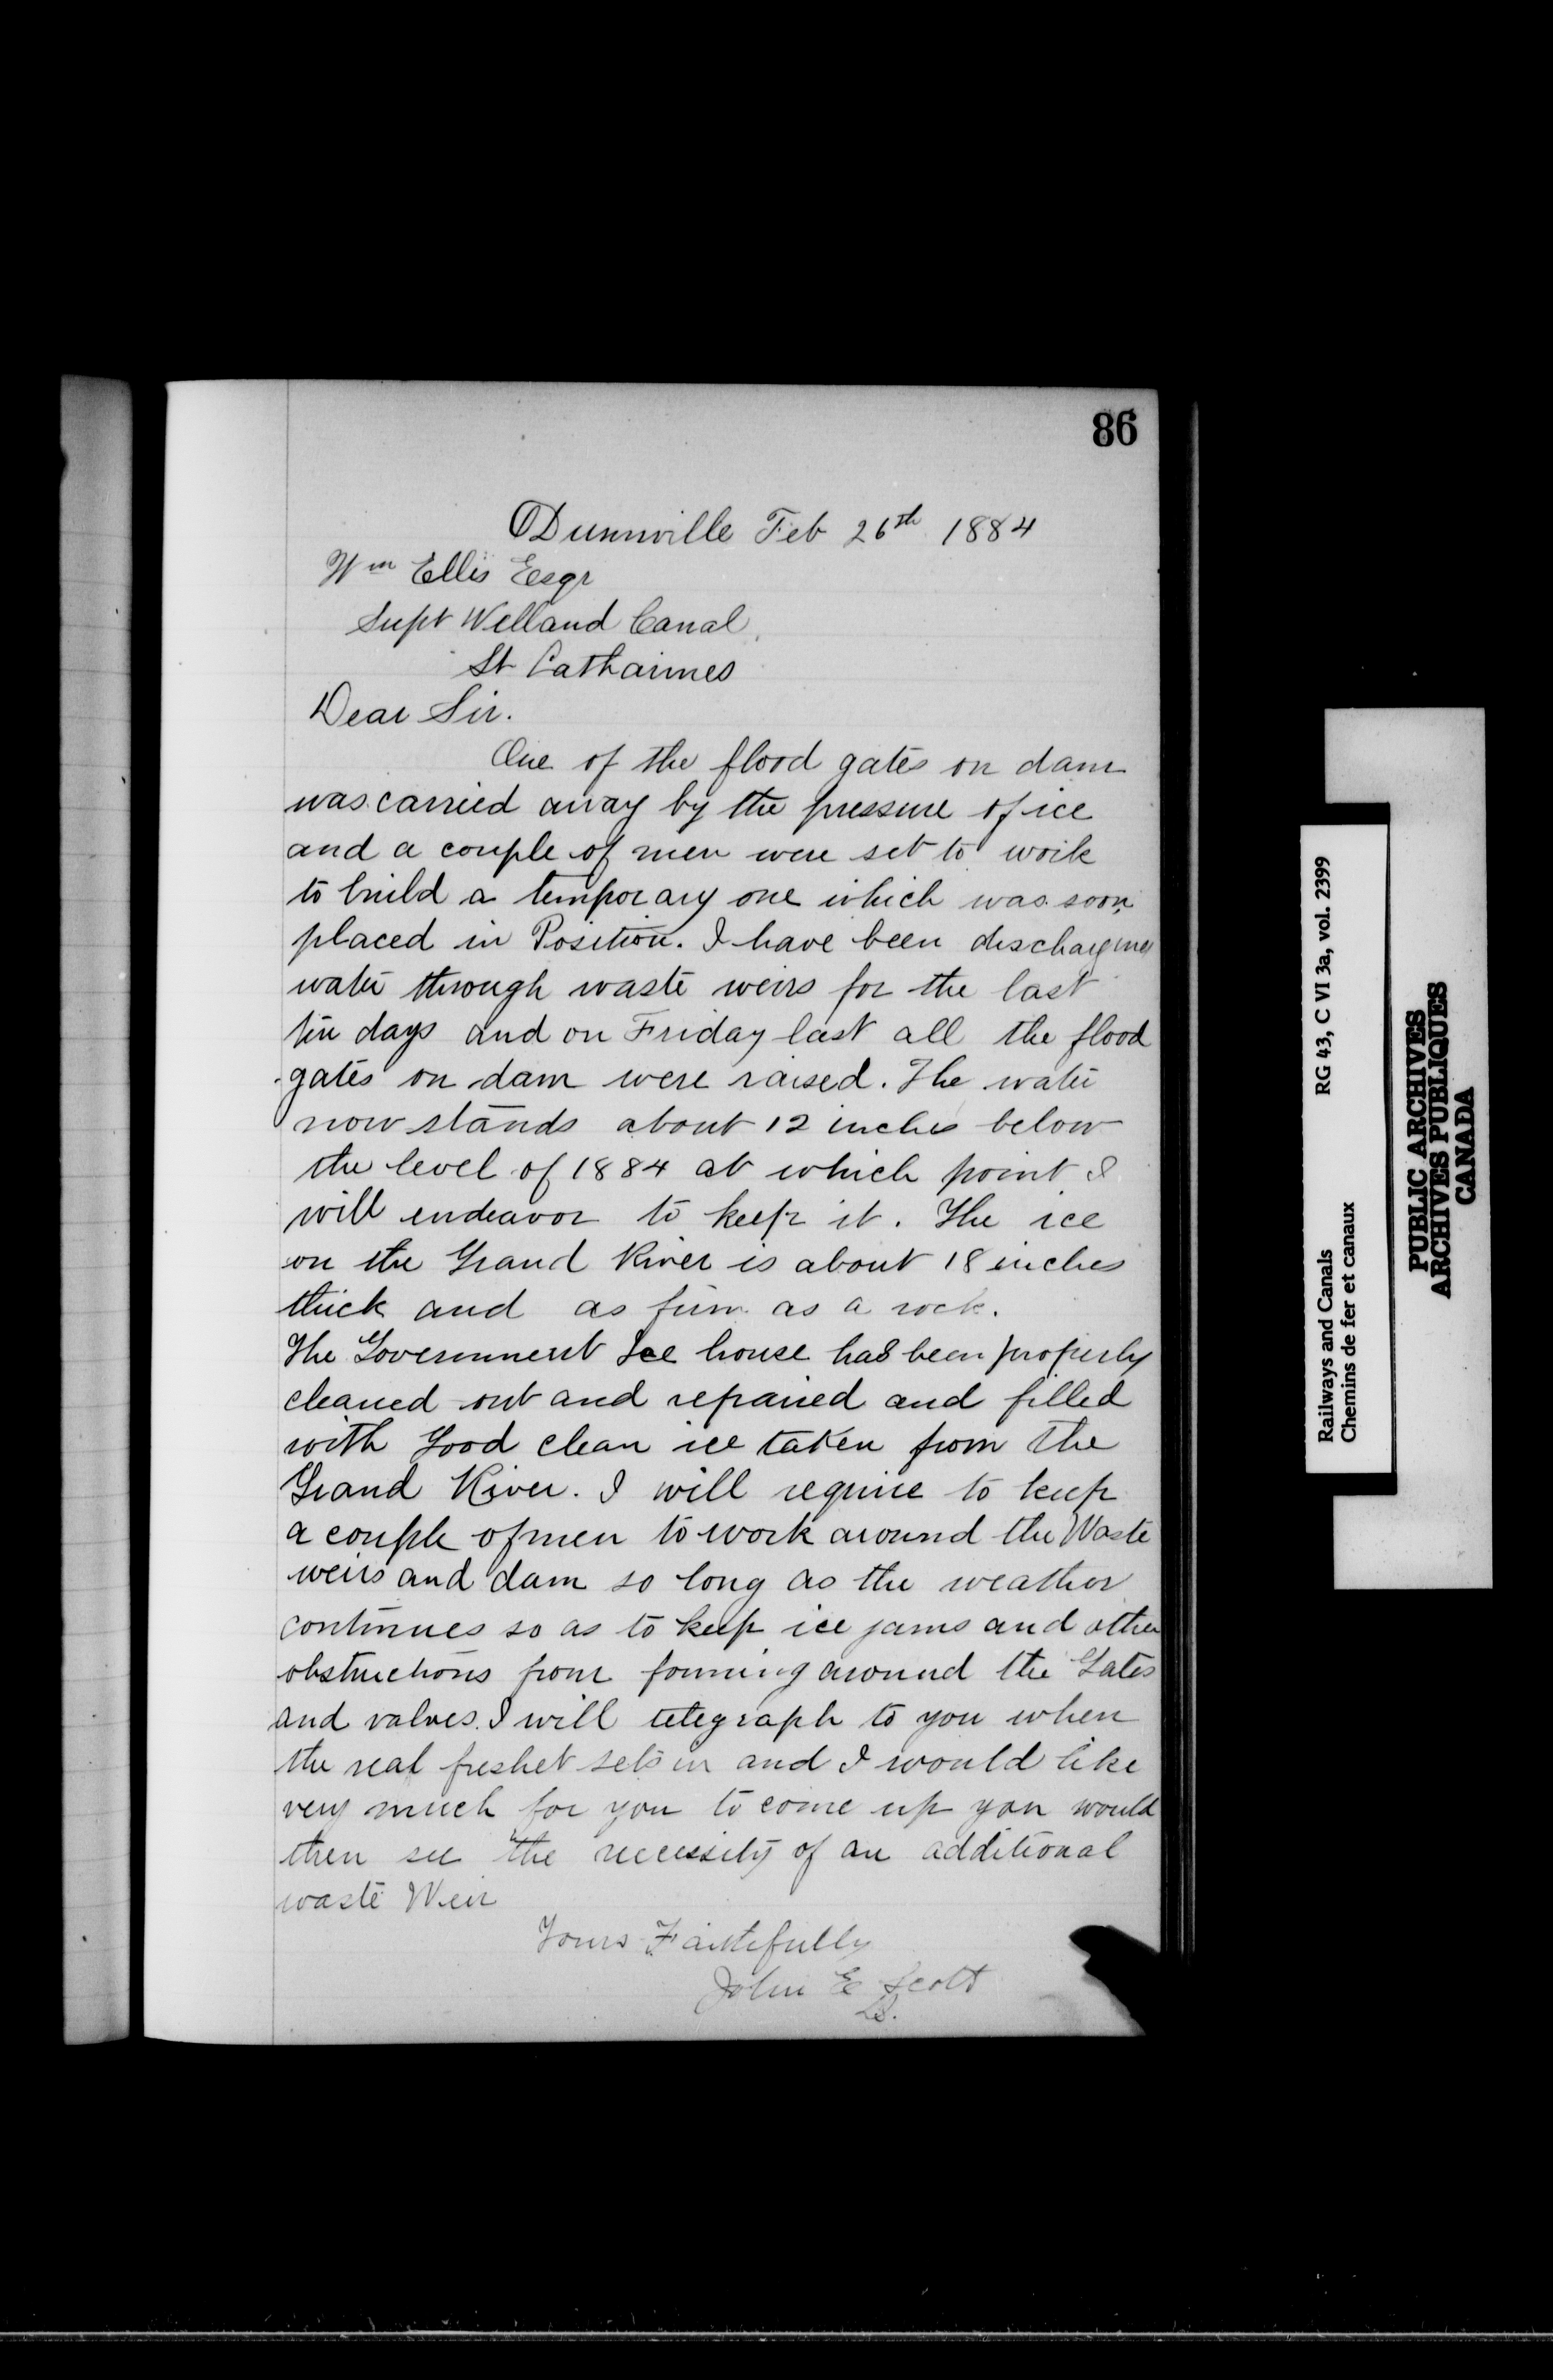 86
Dunnville Feb 26th 1884
Wm Ellis Esqr
Supt Welland Canal
St Catharines
Dear Sir.
One of the flood gates on dam
was carried away by the pressure of ice
and a couple of men were set to work
to build a temporary one which was soon
placed in Position. I have been discharging
water through waste weirs for the last
days and on Friday last all the flood
gates on dam were raised. The water
now stands about 12 inches below
the level of 1884 at which point I
will endeavor to keep it. The ice
on the Grand River is about 18 inches
thick and as firm as a rock.
The Government Ice house has been properly
cleaned out and repaired and filled
with Good clean ice taken from the
Grand River. I will require to keep
a couple of men to work around the Waste
weirs and dam so long as the weather
continues so as to keep ice jams and other
obstructions from forming around the Gates
and valves. I will telegraph to you when
the real freshet sets in and I would like
very much for you to come up you would
then see the necessity of an additional
waste Weir
Yours Faithfully
John E Scott
Railways and Canals RG 43, C VI 3a, vol. 2399
Chemins de fer et canaux
PUBLIC ARCHIVES
ARCHIVES PUBLIQUES
CANADA